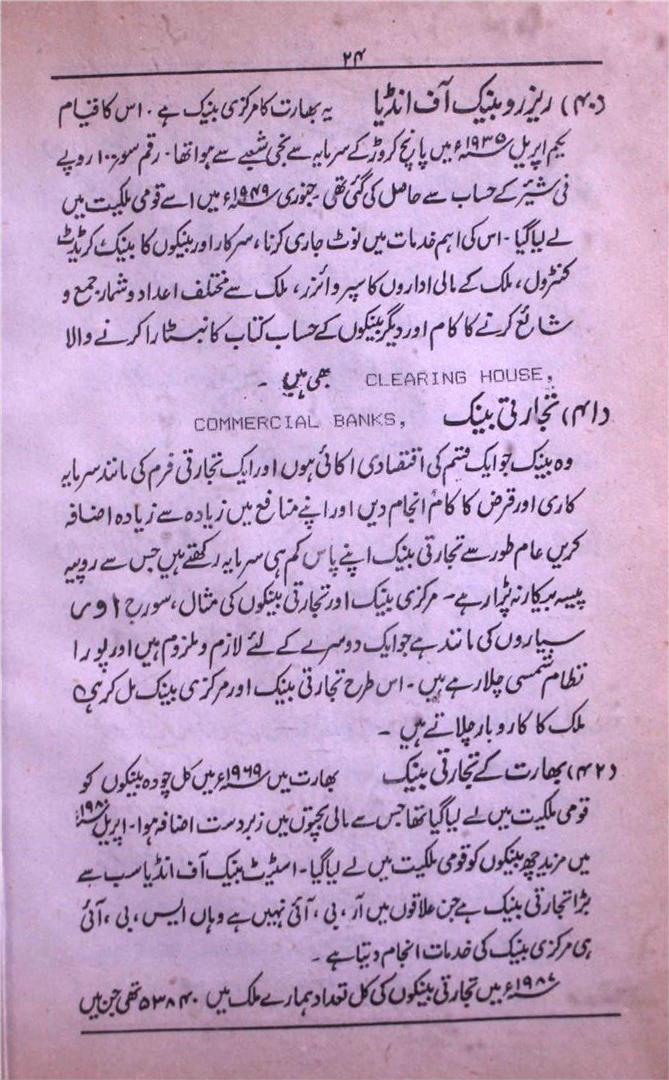 ۲۴
(۴۰) ریزرو بینک آف انڈیا یہ بھارت کا مرکزی بینک ہے ۔ اس کا قیام
یکم اپریل ۱۹۳۵ء میں پانچ کروڑ کے سرمایہ سے نجی شعبے سے ہوا تھا ۔ رقم سو ۱۰۰ روپے
فی شیئر کے حساب سے حاصل کی گئی تھی ۔ جنوری ۱۹۴۹ء میں اسے قومی ملکیت میں
لے لیا گیا ۔ اس کی اہم خدمات میں نوٹ جاری کرنا ، سرکار اور بینکوں کا بینک کریڈٹ
کنٹرول ، ملک کے مالی اداروں کا سپروائزر ، ملک سے مختلف اعداد و شمار جمع و
شائع کرنے کا کام اور دیگر بینکوں کے حساب کتاب کا نبٹارا کرنے والا
CLEARING HOUSE, بھی ہیں ۔
(۴۱) تجارتی بینک COMMERCIAL BANKS,
وہ بینک جو ایک قسم کی اقتصادی اکائی ہوں اور ایک تجارتی فرم کی مانند سرمایہ
کاری اور قرض کا کام انجام دیں اور اپنے منافع میں زیادہ سے زیادہ اضافہ
کریں عام طور سے تجارتی بینک اپنے پاس کم ہی سرمایہ رکھتے ہیں جس سے روپیہ
پیسہ بیکار نہ پڑا رہے ۔ مرکزی بینک اور تجارتی بینکوں کی مثال ، سورج اور
سیاروں کی مانند ہے جو ایک دوسرے کے لئے لازم و ملزوم ہیں اور پورا
نظام شمسی چلا رہے ہیں ۔ اس طرح تجارتی بینک اور مرکزی بینک مل کر ہی
ملک کا کاروبار چلاتے ہیں ۔
(۴۲) بھارت کے تجارتی بینک بھارت میں ۱۹۶۹ء میں کل چودہ بینکوں کو
قومی ملکیت میں لے لیا گیا تھا جس سے مالی بچتوں میں زبردست اضافہ ہوا ۔ اپریل ۱۹۸۰ء
میں مزید چھ بینکوں کو قومی ملکیت میں لے لیا گیا ۔ اسٹیٹ بینک آف انڈیا سب سے
بڑا تجارتی بینک ہے جن علاقوں میں آر ، بی ، آئی نہیں ہے وہاں ایس ، بی ، آئی
ہی مرکزی بینک کی خدمات انجام دیتا ہے ۔
۱۹۸۷ء میں تجارتی بینکوں کی کل تعداد ہمارے ملک میں ۵۳۸۴۰ تھی جن میں